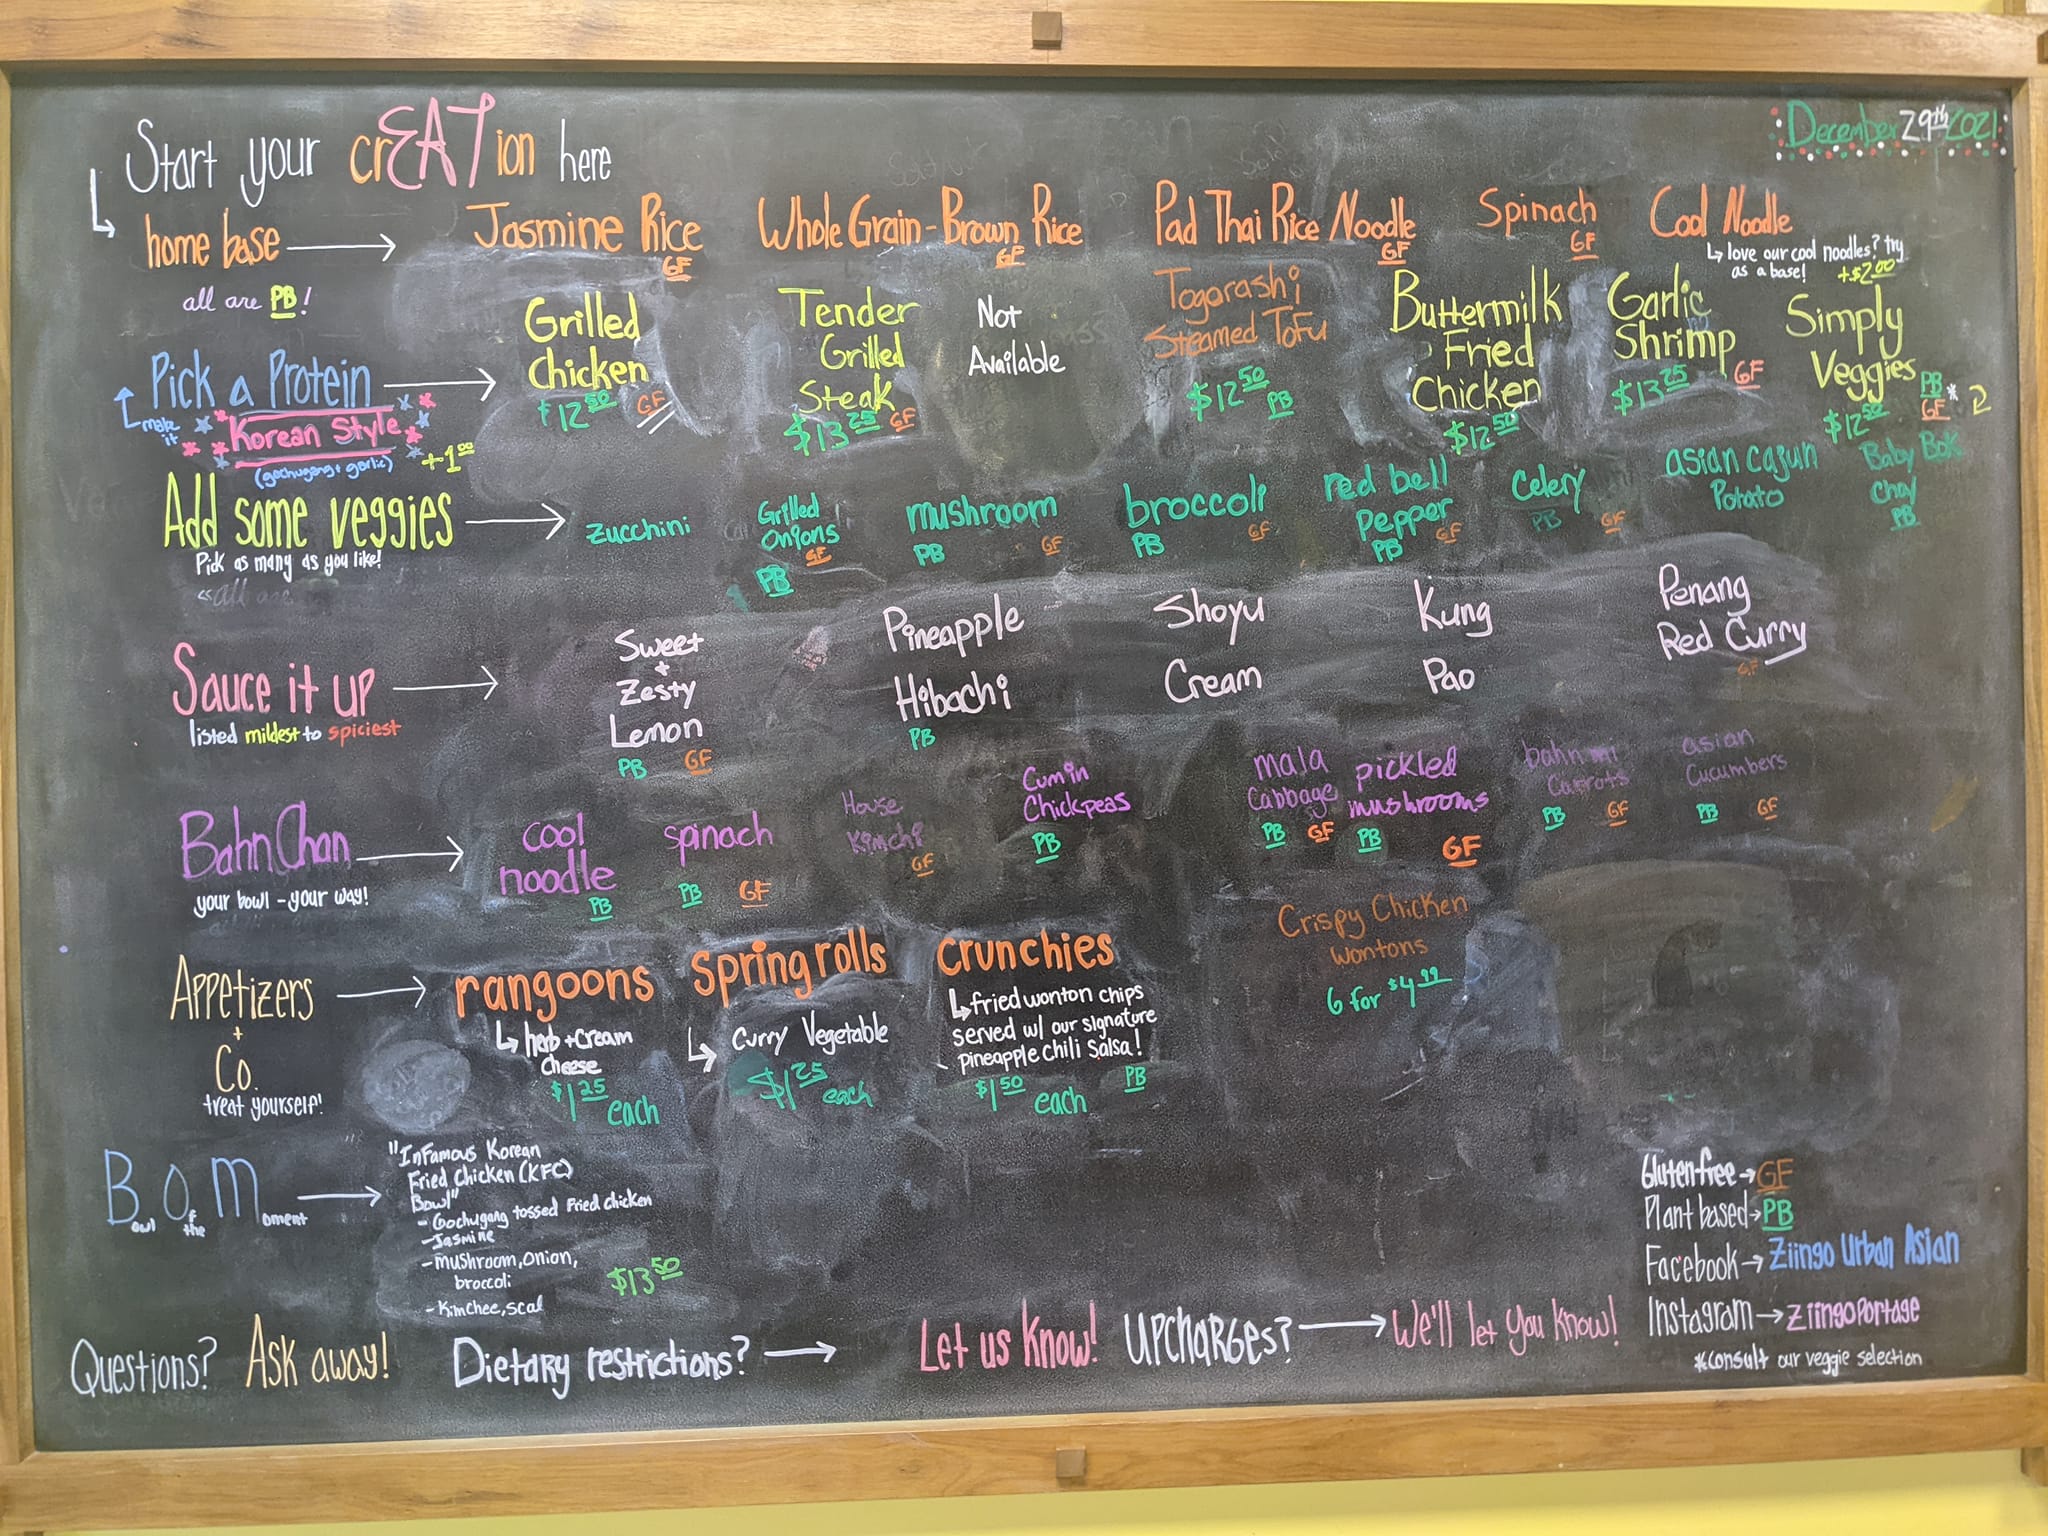 Start your crEATion here
December 29th 2021
home base
all are PB!
Jasmine Rice
GF
Whole Grain-Brown Rice
GF
Pad Thai Rice Noodle
GF
Spinach
GF
Cool Noodle
love our cool noodles? try
as a base! +$2.00
Pick a Protein
make
it
Korean Style
(gochugang + garlic)
+1.00
Grilled
Chicken
$12.50 GF
Tender
Grilled
Steak
$13.25 GF
Not
Available
Togorashi
Steamed Tofu
$12.50 PB
Buttermilk
Fried
Chicken
$12.50
Garlic
Shrimp
$13.25 GF
Simply
Veggies PB
GF*
$12.50
Add some veggies
Pick as many as you like!
"all are
zucchini
Grilled
Onions
GF
PB
mushroom
PB GF
broccoli
PB GF
red bell
Pepper
PB GF
Celery
PB GF
asian cajun
Potato
Baby Bok
Choy
PB
Sauce it up
listed mildest to spiciest
Sweet
+
Zesty
Lemon
PB GF
Pineapple
Hibachi
PB
Shoyu
Cream
Kung
Pao
Penang
Red Curry
GF
Bahn Chan
your bowl - your way!
cool
noodle
PB
spinach
PB GF
House
Kimchi
GF
Cumin
Chickpeas
PB
mala
Cabbage
PB GF
pickled
mushrooms
PB GF
bahn mi
Carrots
PB GF
asian
Cucumbers
PB GF
Appetizers
+
Co.
treat yourself!
rangoons
herb + cream
cheese
$1.25 each
Spring rolls
Curry Vegetable
$1.25 each
Crunchies
fried wonton chips
served w/ our signature
pineapple chili salsa!
$1.50 each PB
Crispy Chicken
wontons
6 for $4.99
Bowl Of the Moment
"Infamous Korean
Fried Chicken (KFC)
Bowl"
- Gochugang tossed Fried chicken
- Jasmine
- mushroom, onion,
broccoli
- Kimchee, scal
$13.50
Gluten free → GF
Plant based → PB
Facebook → Ziingo Urban Asian
Instagram → Ziingoportage
*consult our veggie selection
Questions? Ask away! Dietary restrictions? → Let us know! Upcharges? → We'll let you know!